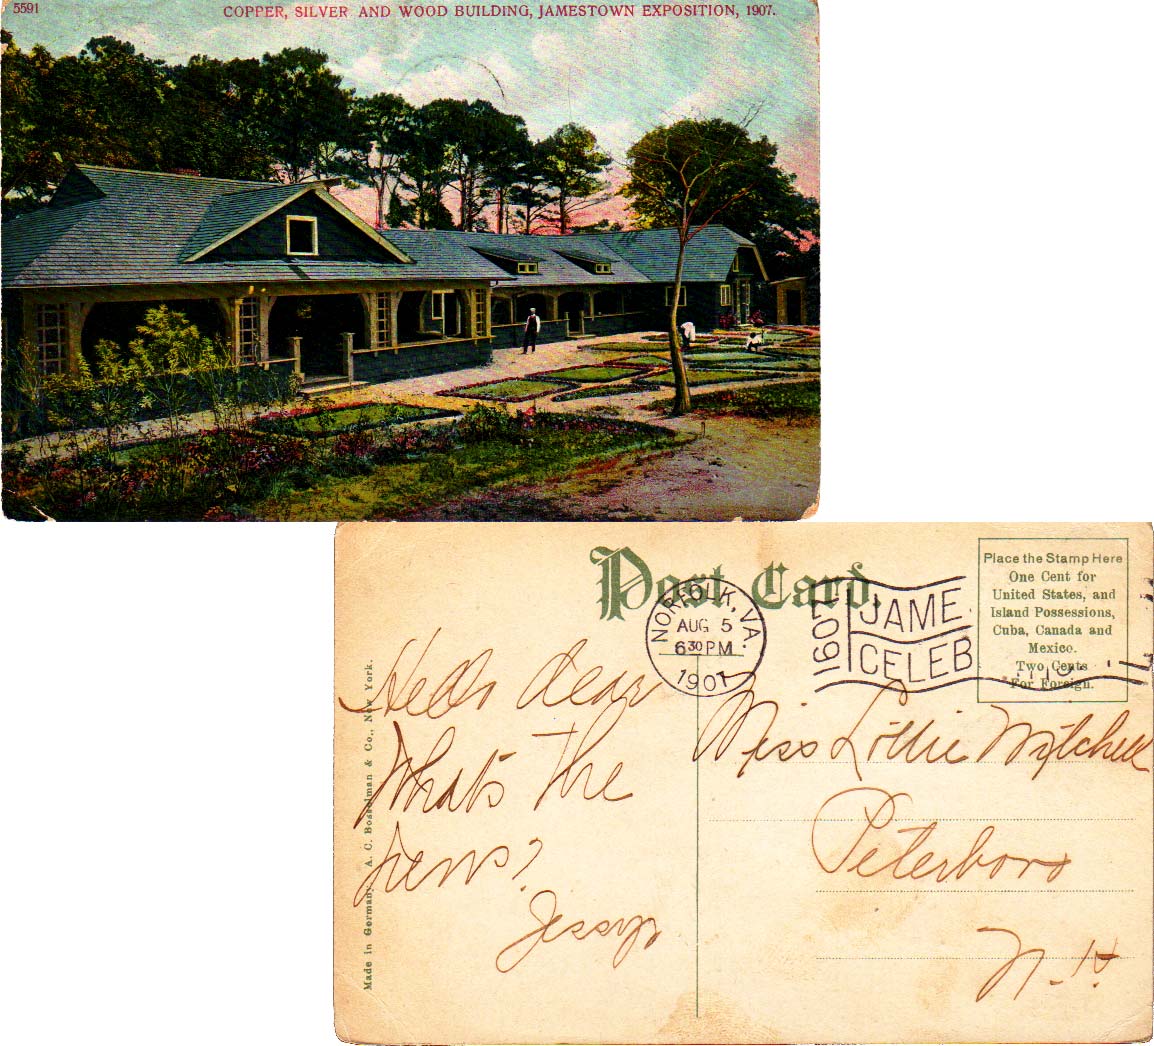 5591
COPPER, SILVER AND WOOD BUILDING, JAMESTOWN EXPOSITION, 1907.
Post Card.
NORFOLK, VA.
AUG 5
6 30 PM
1907
1607
JAME
CELEB
Place the Stamp Here
One Cent for
United States, and
Island Possessions,
Cuba, Canada and
Mexico.
Two Cents
For Foreign.
Hello dear
What's the
news?
Jessye
Miss Lottie Mitchell
Peterboro
N.H.
Made in Germany. A. C. Bosselman & Co., New York.